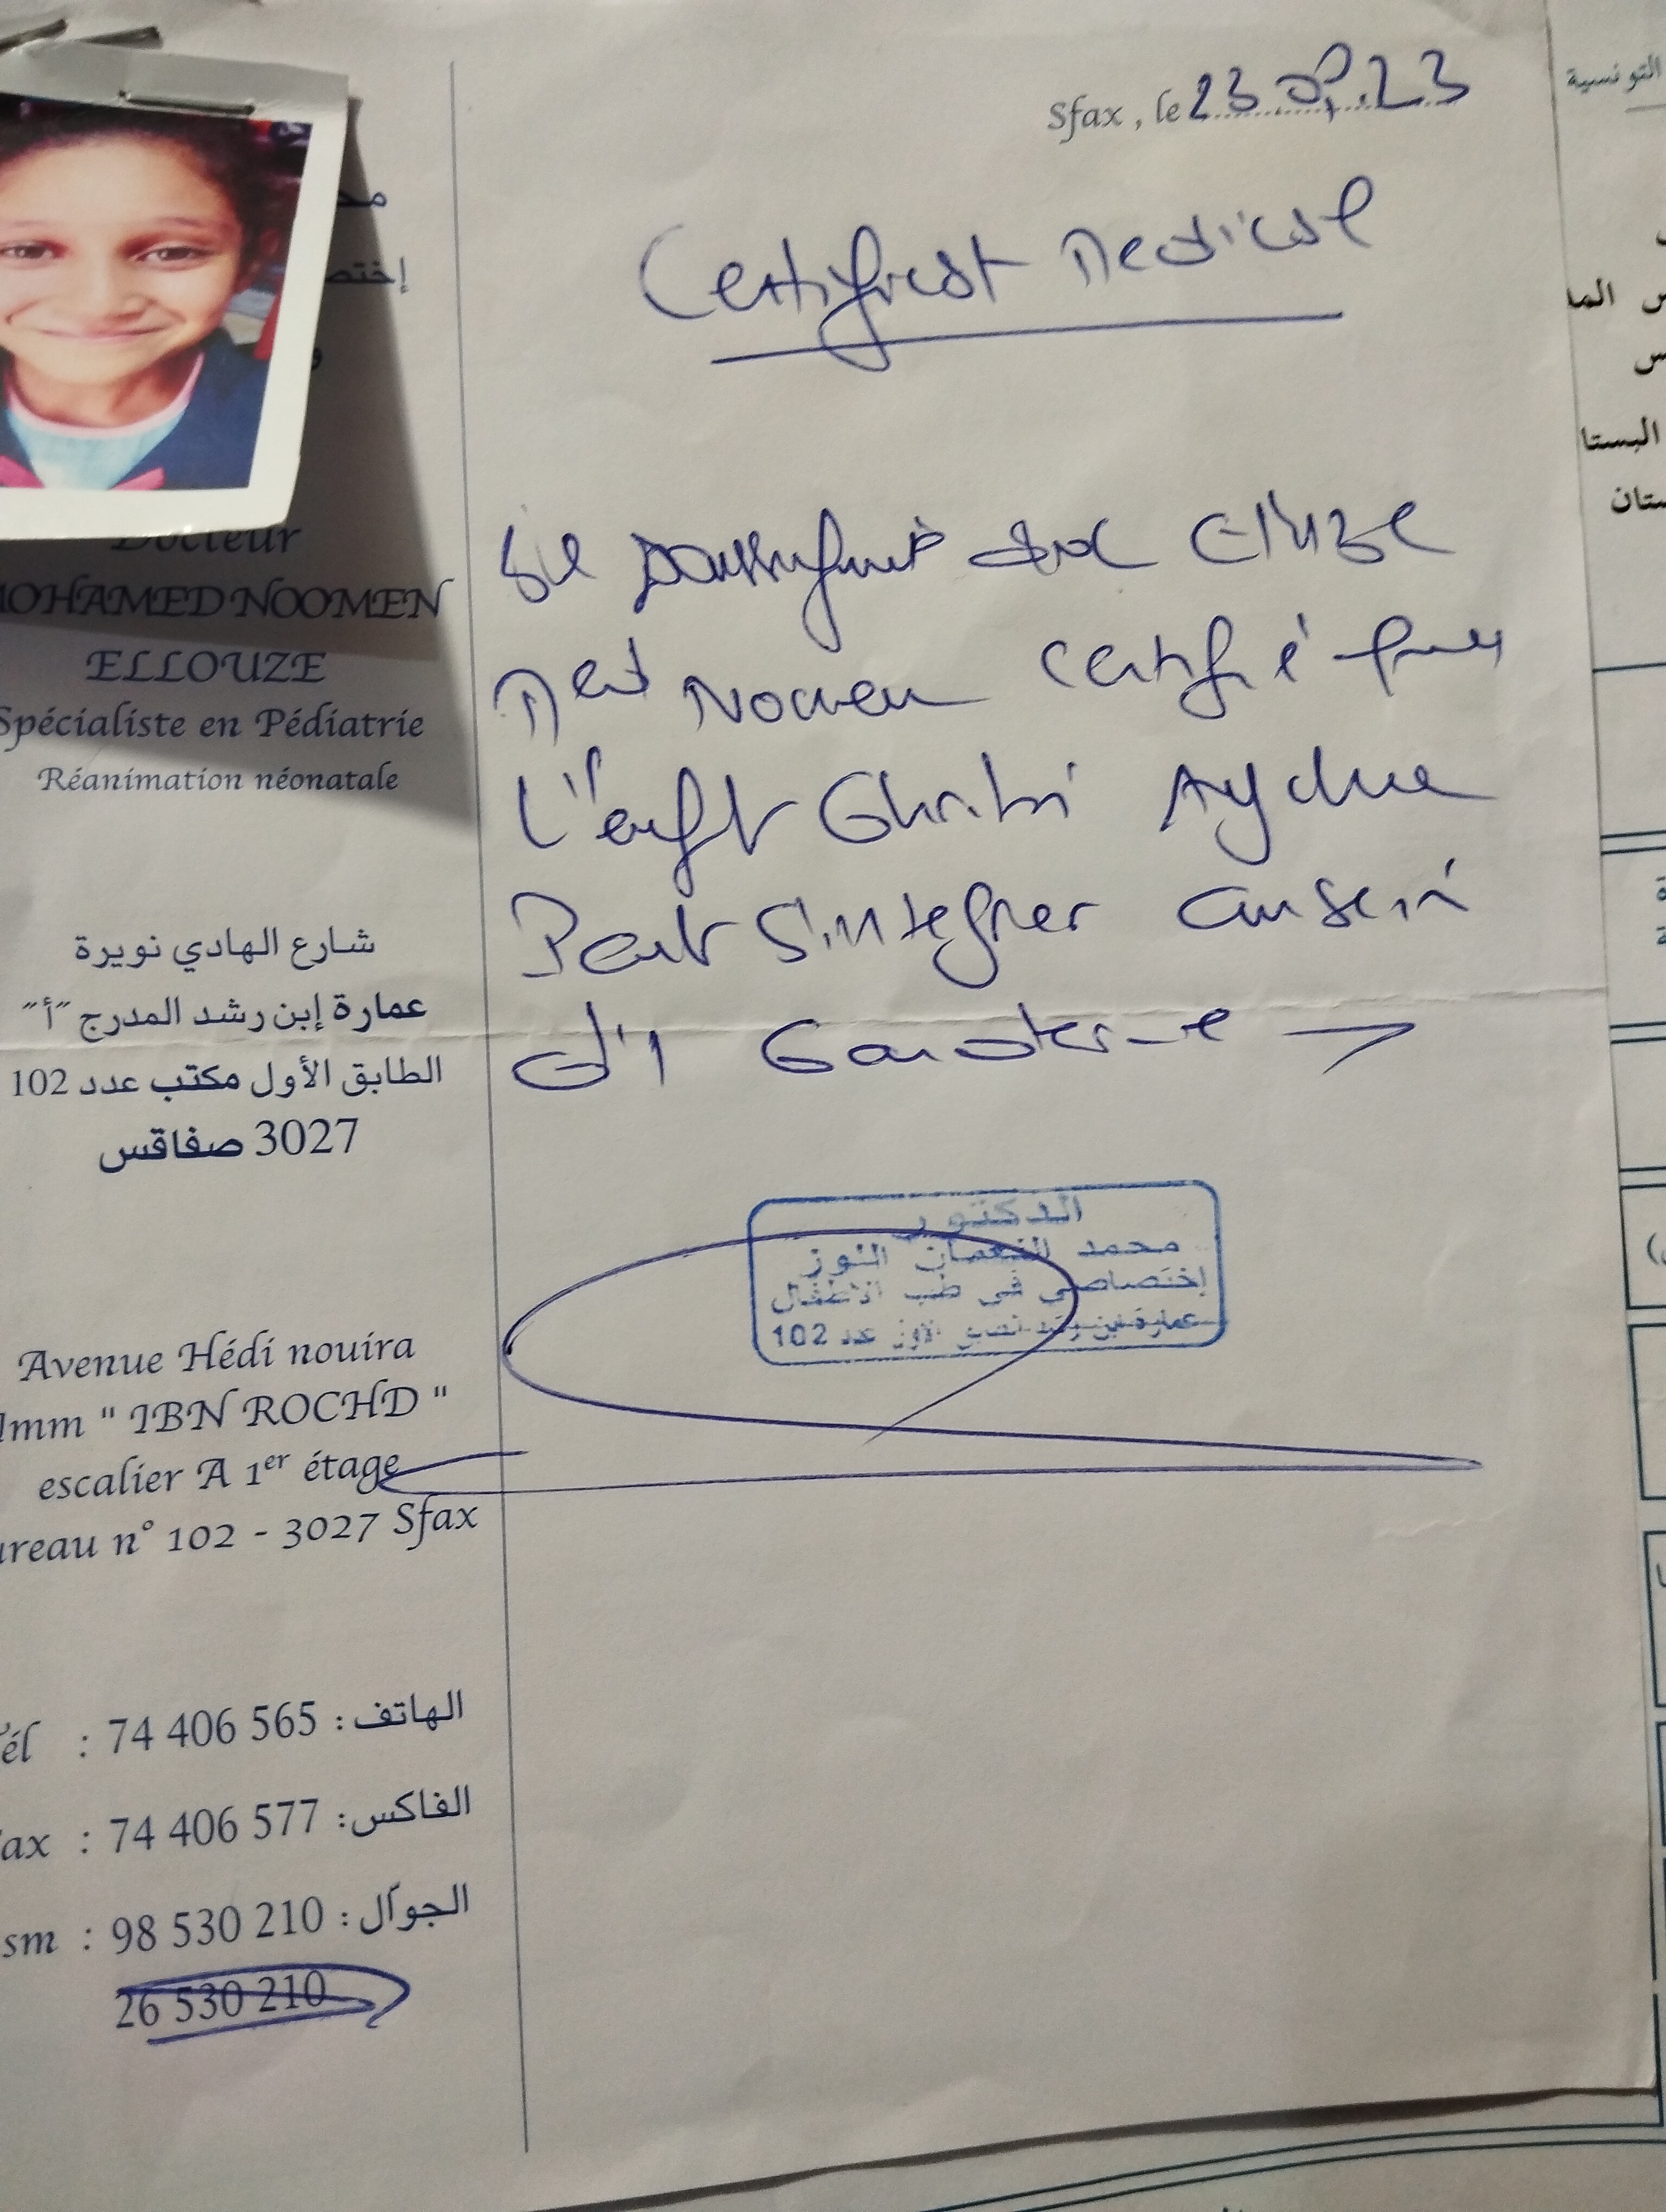 Sfax , le 23.08.23
Certificat Medical
Docteur
MOHAMED NOOMEN
ELLOUZE
Spécialiste en Pédiatrie
Réanimation néonatale
شارع الهادي نويرة
عمارة إبن رشد المدرج "أ"
الطابق الأول مكتب عدد 102
3027 صفاقس
Avenue Hédi nouira
Imm " IBN ROCHD "
escalier A 1er étage
Bureau n° 102 - 3027 Sfax
Tél : 74 406 565 : الهاتف
Fax : 74 406 577 : الفاكس
Gsm : 98 530 210 : الجوال
26 530 210
Je soussigné Dr Ellouze
Med Nomen certifie que
L'enft Ghribi
Peut s'integrer au sein
d'1 Garderie
الدكتور
محمد النعمان اللوز
إختصاصي في طب الأطفال
عمارة ابن رشد الطابق الأول عدد 102
التونسية
البستا
ستان